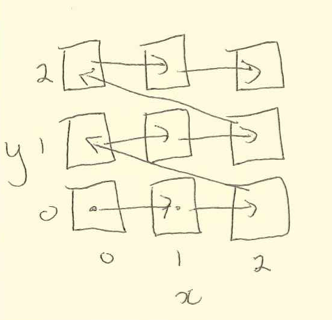 2
y 1
0
0 1 2
x